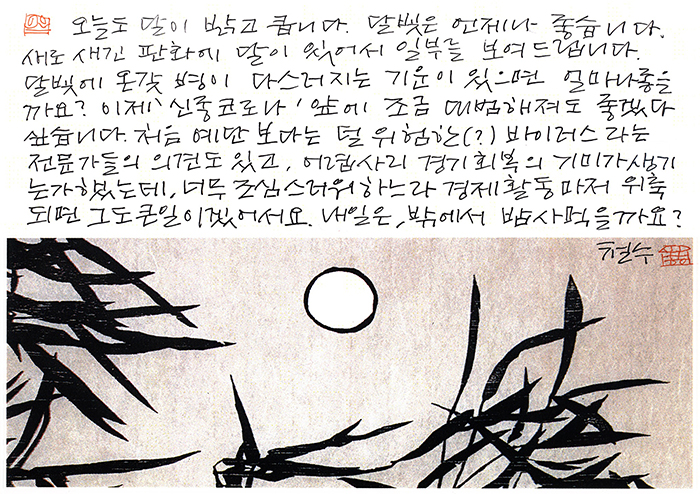 오늘도 달이 밝고 큽니다. 달빛은 언제나 좋습니다.
새로 새긴 판화에 달이 있어서 일부를 보여드립니다.
달빛에 온갖 병이 다스려지는 기운이 있으면 얼마나좋을
까요? 이제 '신종코로나' 앞에 조금 대범해져도 좋겠다
싶습니다. 처음 예단 보다는 덜 위험한(?) 바이러스 라는
전문가들의 의견도 있고, 어렵사리 경기회복의 기미가 생기
는가했는데, 너무 조심스러워 하느라 경제활동마저 위축
되면 그도 큰일이겠어서요. 내일은, 밖에서 밥 사먹을까요?
철수